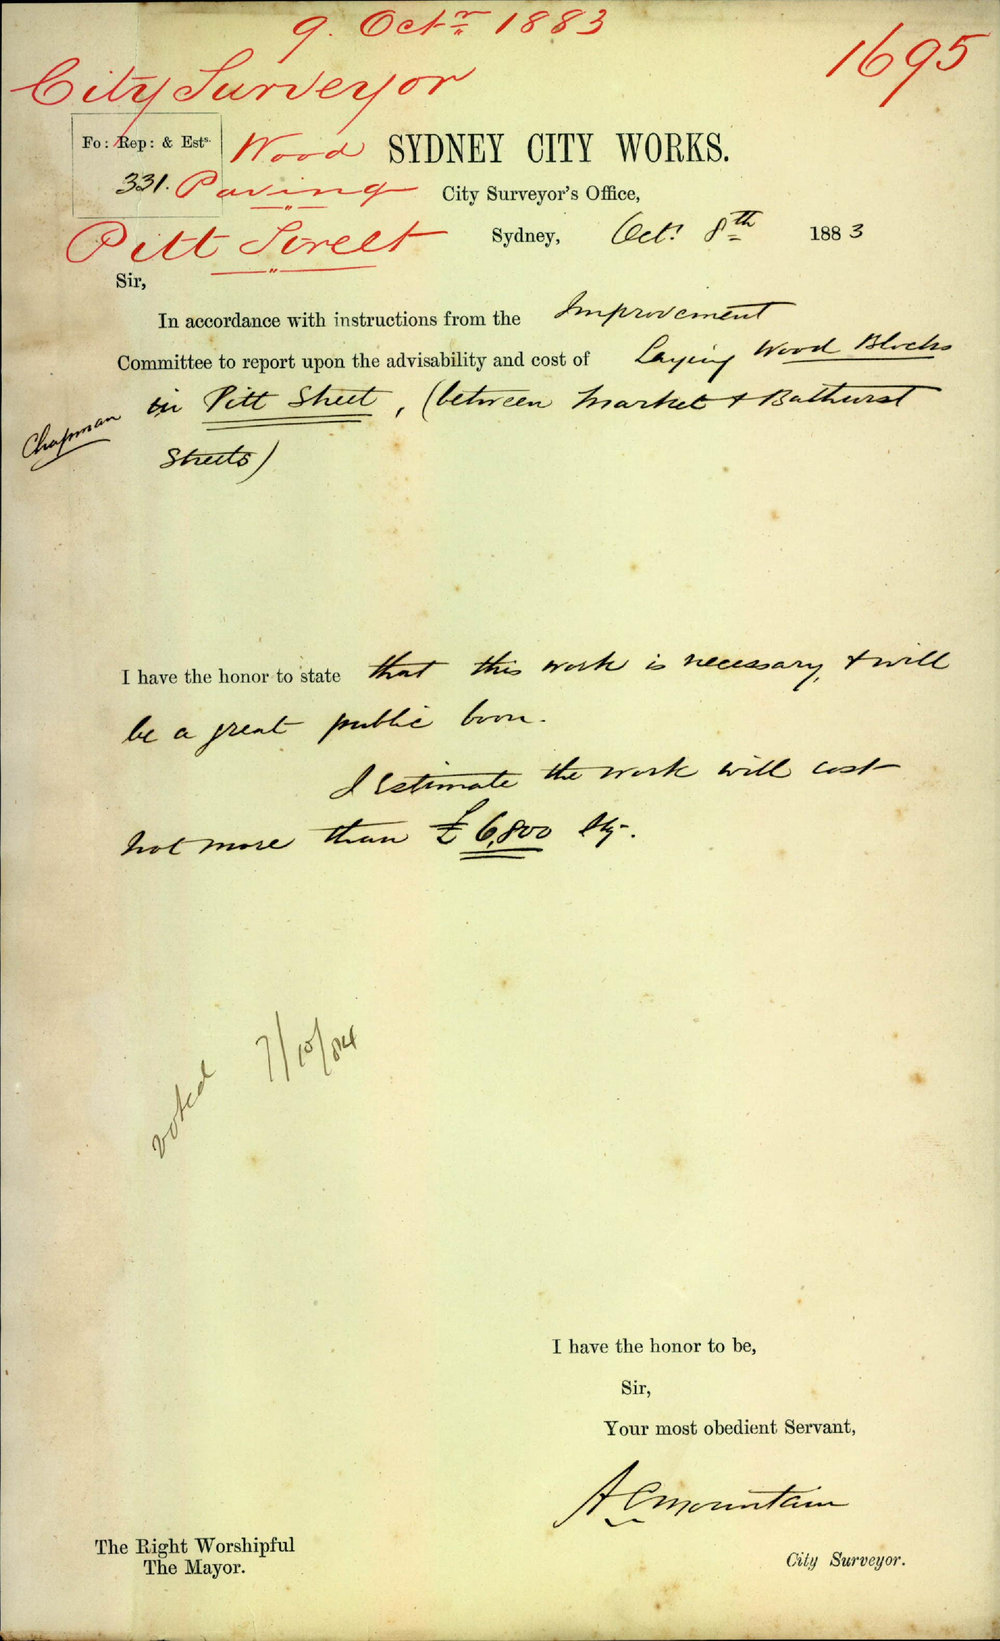 9. Octr. 1883
1695
City Surveyor
Fo: Rep: & Ests.
331.
Wood
Paving
Pitt Street
SYDNEY CITY WORKS.
City Surveyor's Office,
Sydney, Oct. 8th 1883
Sir,
In accordance with instructions from the Improvement
Committee to report upon the advisability and cost of Laying Wood Blocks
Chapman
in Pitt Street, (between Market & Bathurst
Streets)
I have the honor to state that this work is necessary, & will
be a great public boon.
I Estimate the work will cost
not more than £6,800 Stg.
voted 7/10/84
I have the honor to be,
Sir,
Your most obedient Servant,
A C Mountain
City Surveyor.
The Right Worshipful
The Mayor.